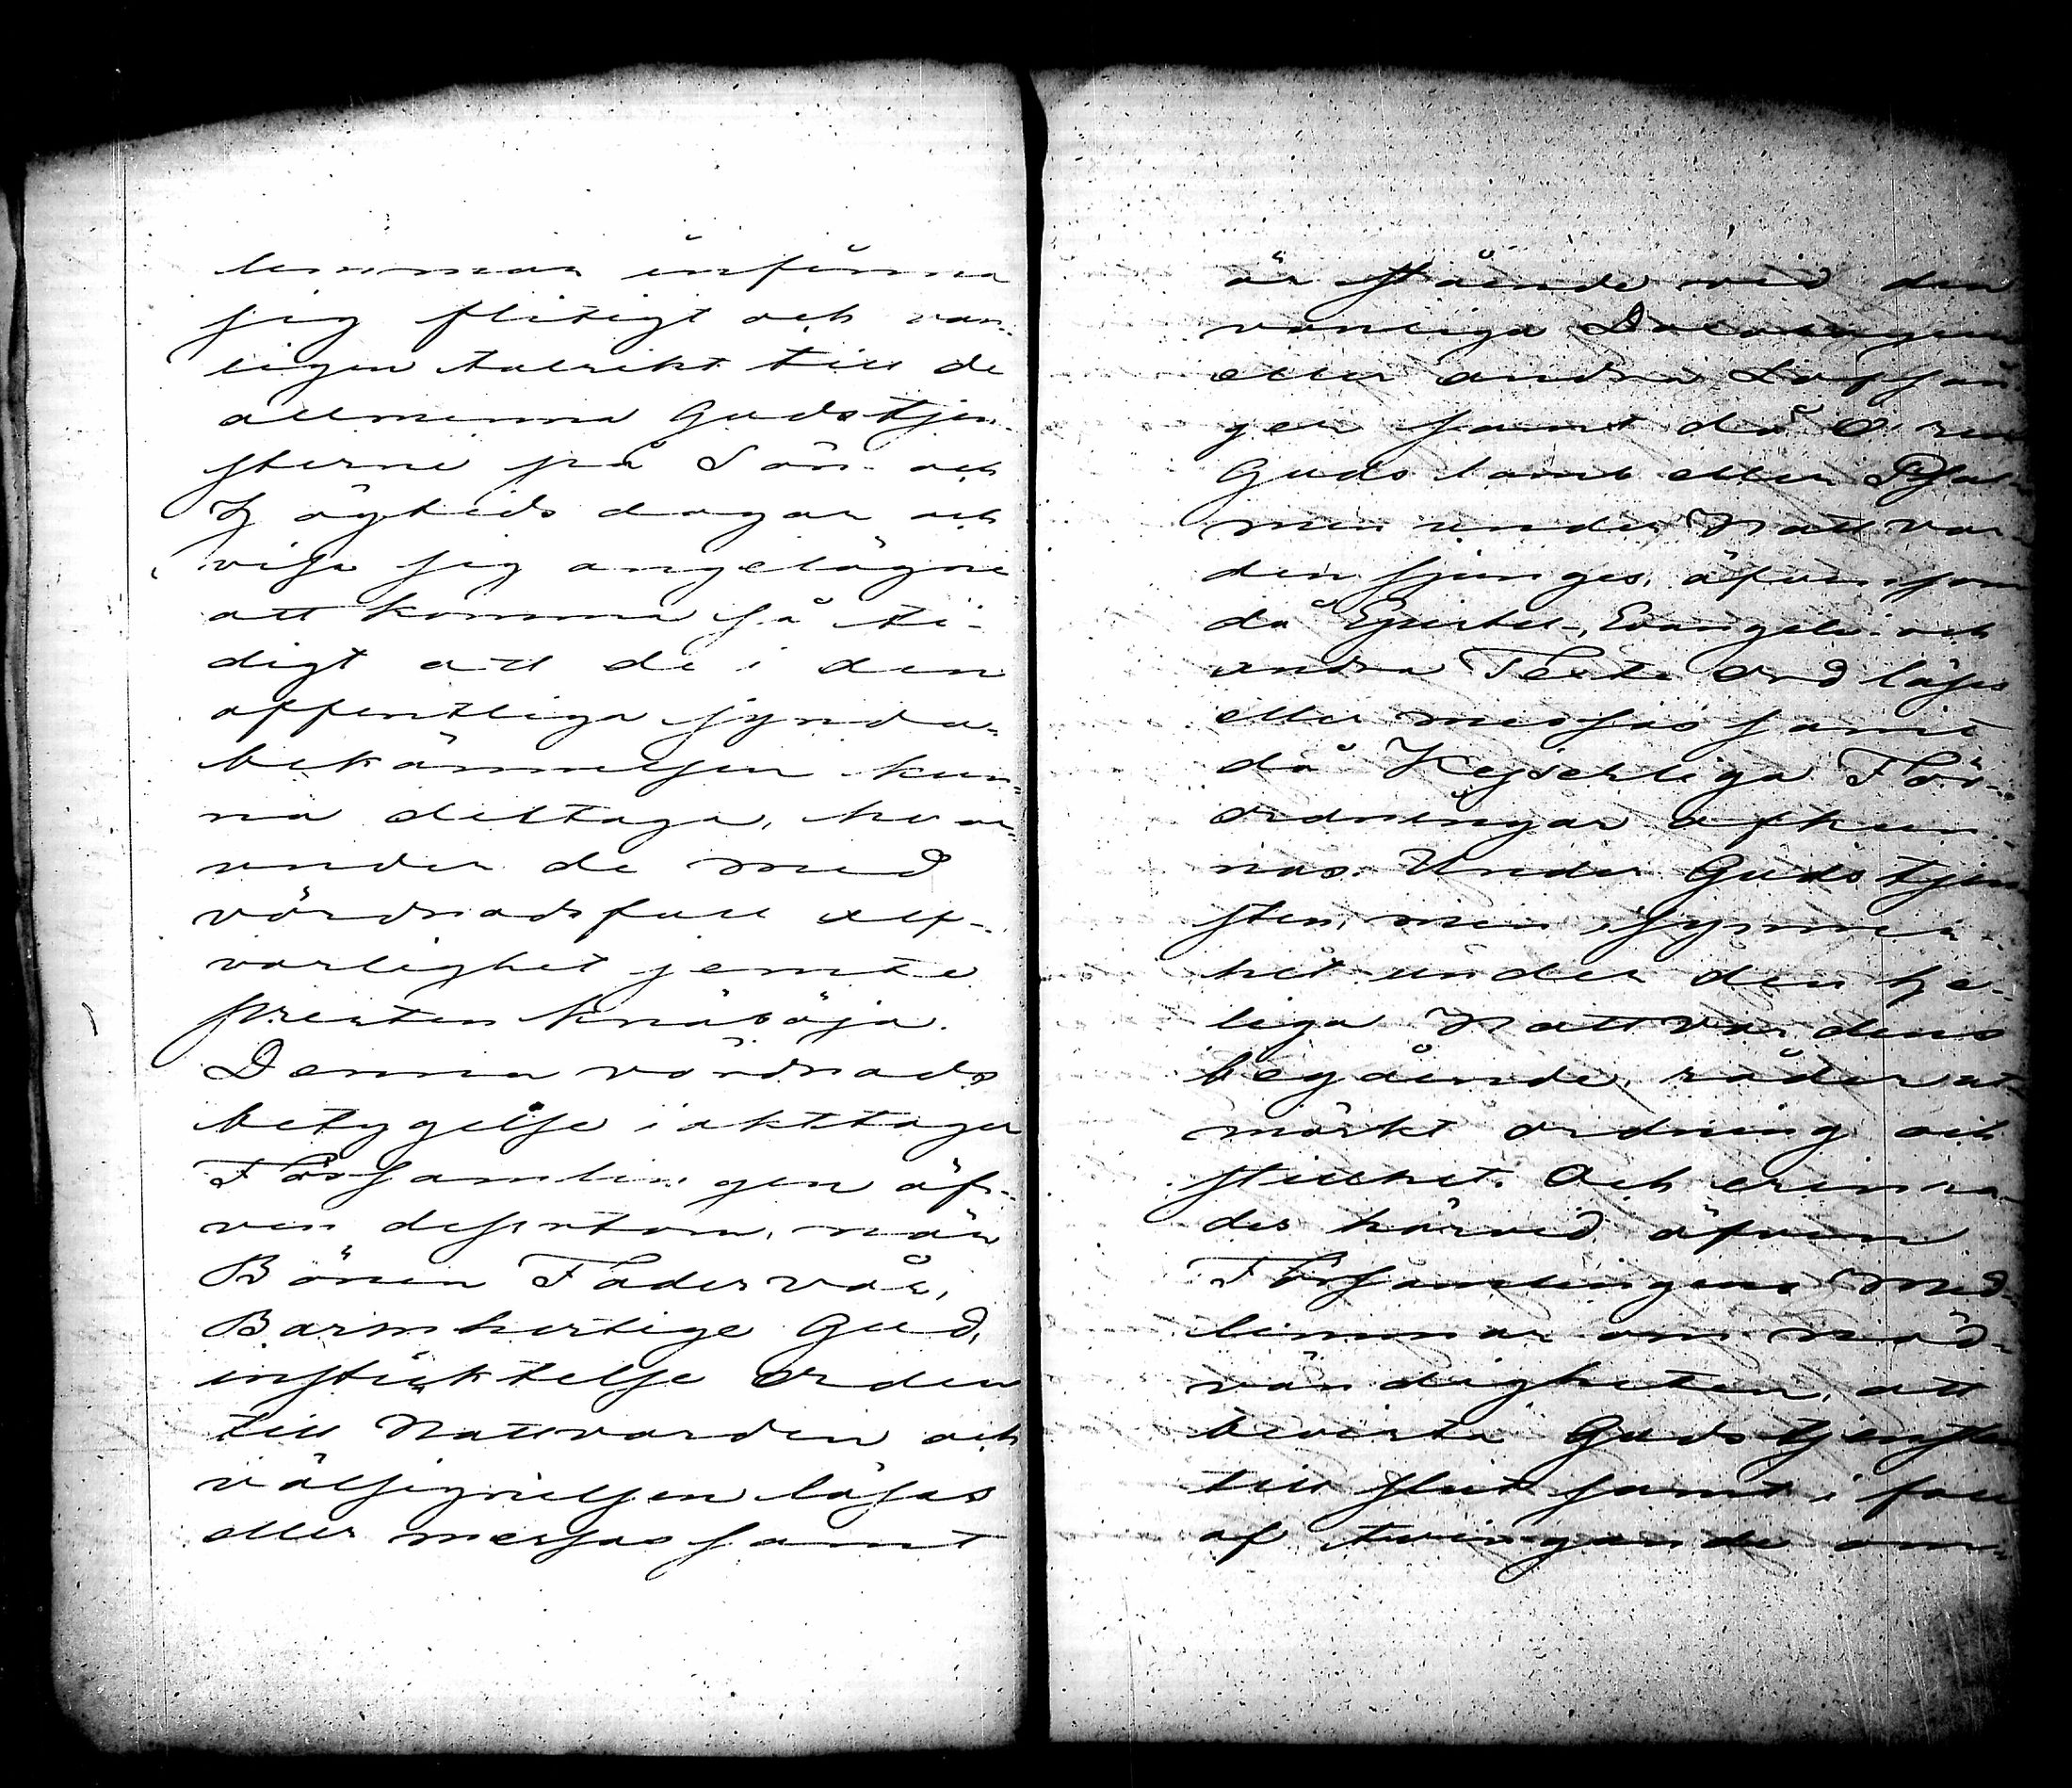 lemmar infinna
sig flitigt och van-
ligen talrikt till de
allmänna Gudstjen-
sterne på Sön- och
Högtids dagar och
visa sig angelägne
att komma så ti-
digt att de i den
offentliga synda-
bekännelsen kun-
na deltaga, hvar-
under de med
vördnadsfull alf-
varlighet jemte
presten knäböja.
Denna vördnads
betygelse iakttager
Församlingen äf-
ven dessutom, när
Bönen Fader vår,
Barmhertige Gud,
instiktelse orden
till Nattvarden och
välsignelsen läses
eller messas samt
är stående vid den
vanliga
eller andra Lofsån
ger samt då O! rene
Guds lamb eller Psal-
men under Nattvar-
den sjunges, äfvensom
då Epistel-, Evangelii- och
andra Texte ord läses
eller messas samt
då Kejserliga För-
ordningar afkun-
nas. Under Gudstjen
sten, men synner-
het under den he-
liga Nattvardens
begående, råder ut-
märkt ordning och
stillhet. Och erinra-
des härvid äfven
Församlingens Med-
lemmar om nöd-
vändigheten, att
bevista Gudstjensten
till slut samt i fall
af tvingande om-